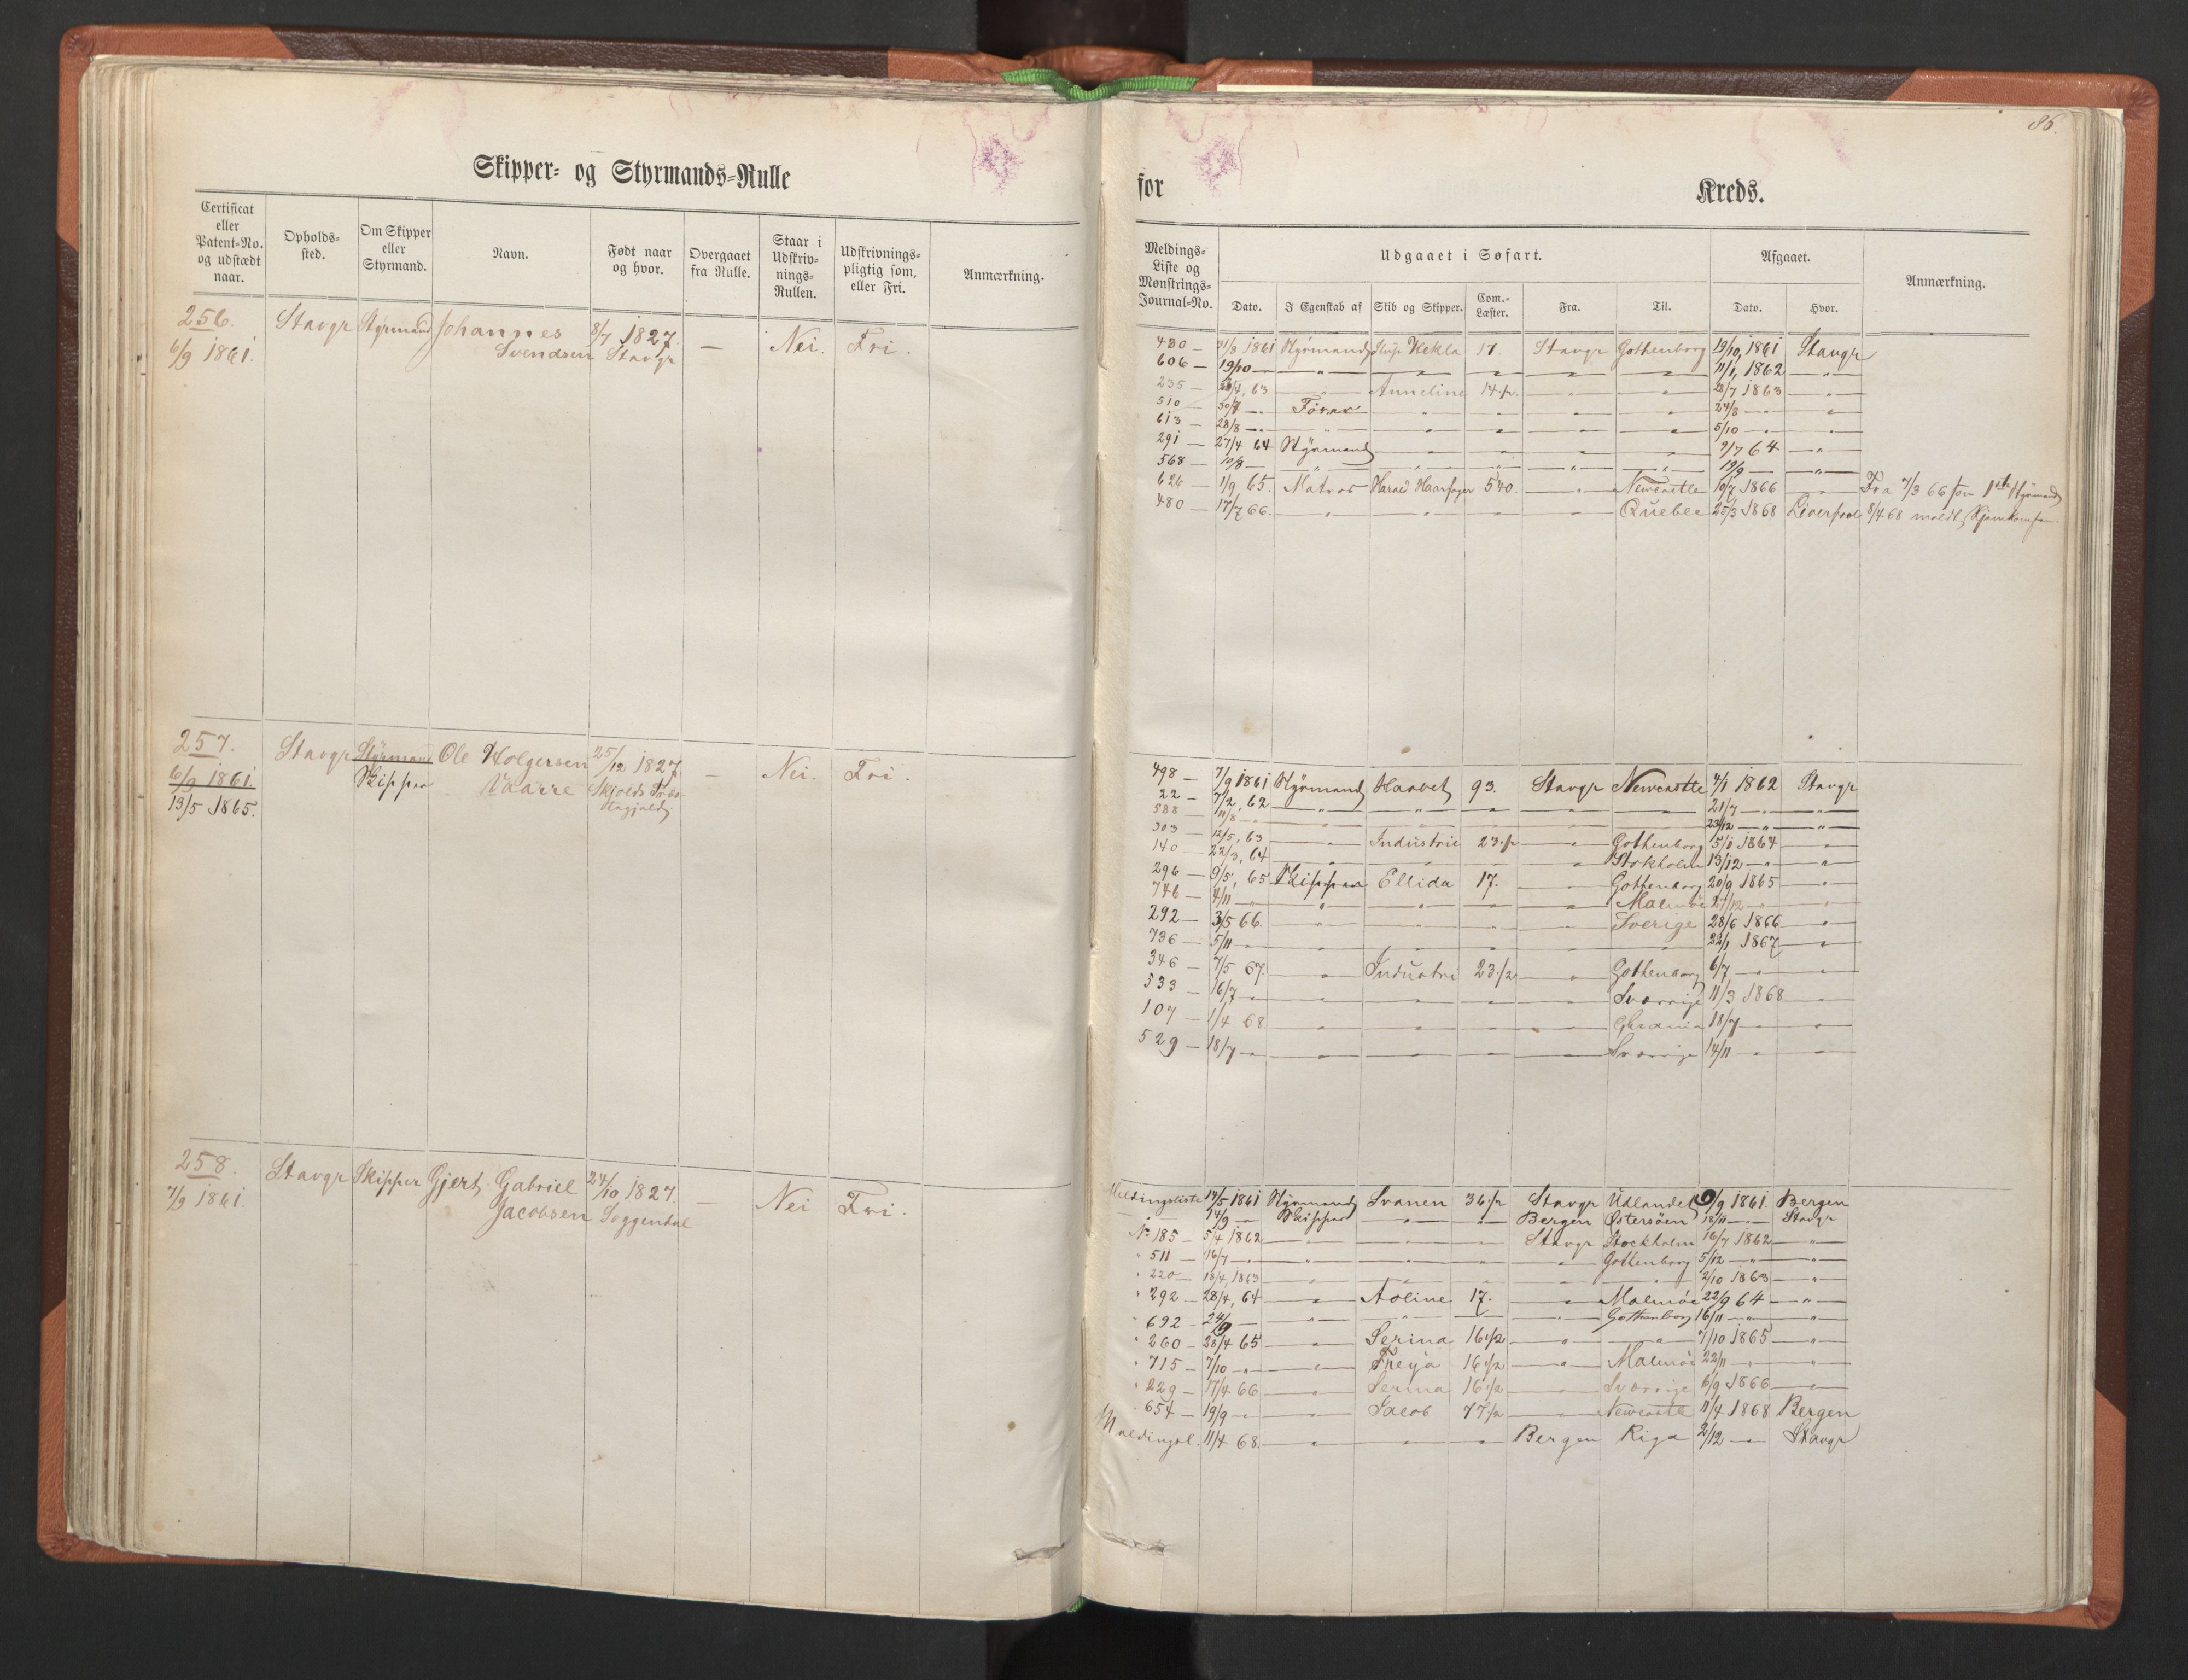 86.
Skipper- og Styrmands-Rulle
for Kreds.
Certificat eller Patent-No. og udstædt naar.
Opholds-sted.
Om Skipper eller Styrmand.
Navn.
Født naar og hvor.
Overgaaet fra Rulle.
Staar i Udskriv-nings-Rullen.
Udskrivnings-pligtig som, eller Fri.
Anmærkning.
Meldings-Liste og Mønstrings-Journal-No.
Udgaaet i Søfart.
Dato.
I Egenskab af
Skib og Skipper.
Com.-Læster.
Fra.
Til.
Afgaaet.
Dato.
Hvor.
Anmærkning.
256. Stavgr Styrmand Johannes 8/7 1827. — Nei. Fri.
6/9 1861. Svendsen Stavgr
480 — 31/8 1861 Styrmand Hekla 17. Stavgr Gothenborg 19/10, 1861 Stavgr
606 — 19/10 — " — " — " — " — " 11/1, 1862 — " —
235 — 29/4, 63 — " — Anneline 14 1/2 — " — " 28/7 1863 — " —
510 — 30/7 — " Fører — " — " — " — " 24/8 — " — "
613 — 28/8 — " — " — " — " — " — " 5/10 — " — "
291 — 27/4 64 Styrmand — " — " — " — " 2/7 64 — " —
568 — 10/8 — " — " — " — " — " 19/9 — " —
626 — 1/9 65. Matros Harald Haarfager 540. — " — Newcastle 10/7 1866 — " — Fra 7/3 66 som 1ste Styrmand
480 — 17/7 66. — " — " — " — " — Quebec 25/3 1868 Liverpool 8/4 68 meldt Hjemkomsten.
257. Stavgr Styrmand Ole Holgersen 25/12 1827 — Nei. Fri.
6/9 1861. Skipper Vaarre Skjolds Præ-
13/5 1865. stegjeld
498 — 7/9 1861 Styrmand Haabet 93. Stavgr Newcastle 4/1 1862 Stavgr
22 — 7/2, 62 — " — " — " — " — " 21/7 — " — "
588 — 11/8 — " — " — " — " — " 23/12 — " — "
303 — 12/5, 63 — " — Industrie 23 1/2 — " — Gothenborg 5/1 1864 — " —
140 — 22/3, 64 — " — " — " — " Stokholm 13/12 — " — "
296 — 9/5, 65 Skipper Ellida 17. — " — Gothenborg 20/9 1865 — " —
746 — 4/11 — " — " — " — " — Malmöe 27/12 — " — "
292 — 3/5 66. — " — " — " — " — Sverige 28/6 1866 — " —
736 — 5/11 — " — " — " — " — " 22/1 1867 — " —
346 — 7/5 67. — " — Industri 23 1/2 — " — Gothenborg 6/7 — " — "
533 — 16/7 — " — " — " — " — Sverrige 11/3 1868 — " —
107 — 1/4 68. — " — " — " — " 18/7 — " — "
529 — 18/7 — " — " — " — " — Sverrige 14/11 — " — "
258. Stavgr Skipper Gjert Gabriel 24/10 1827. — Nei Fri.
7/9 1861. Jacobsen Soggendal
Meldingsliste 14/5 1861 Styrmand Svanen 36 1/2 Stavgr Udlandet 9/9 1861. Bergen
14/9 — Skipper — " — " Bergen Østersöen 18/11 — " — Stavgr
No 185 — 5/4 1862 — " — " — " Stavgr Stockholm 16/7 1862 — " —
" 511 — 16/7 — " — " — " — " — Gothenborg 5/12 — " — "
" 220 — 18/4, 1863 — " — " — " — " — " 2/10 1863 — " —
" 292 — 28/4, 64 — " — Aoline 17. — " — Malmöe 22/9 64 — " —
" 692 — 24/9 — " — " — " — " Gothenborg 16/11 — " — "
" 260 — 28/4 65 — " — Serina 16 1/2 — " — " 7/10 1865 — " —
" 715 — 7/10 — " — " — Freya 16 1/2 — " — Malmöe 22/11 — " — "
" 229 — 17/4 66 — " — Serina 16 1/2 — " — Sverrige 6/9 1866 — " —
" 654 — 19/9 — " — " — Jacob 77 1/2 — " — Newcastle 11/4 1868 Bergen
Meldingsl. 11/4 68. — " — " — " Bergen Riga 2/12 — " — Stavgr